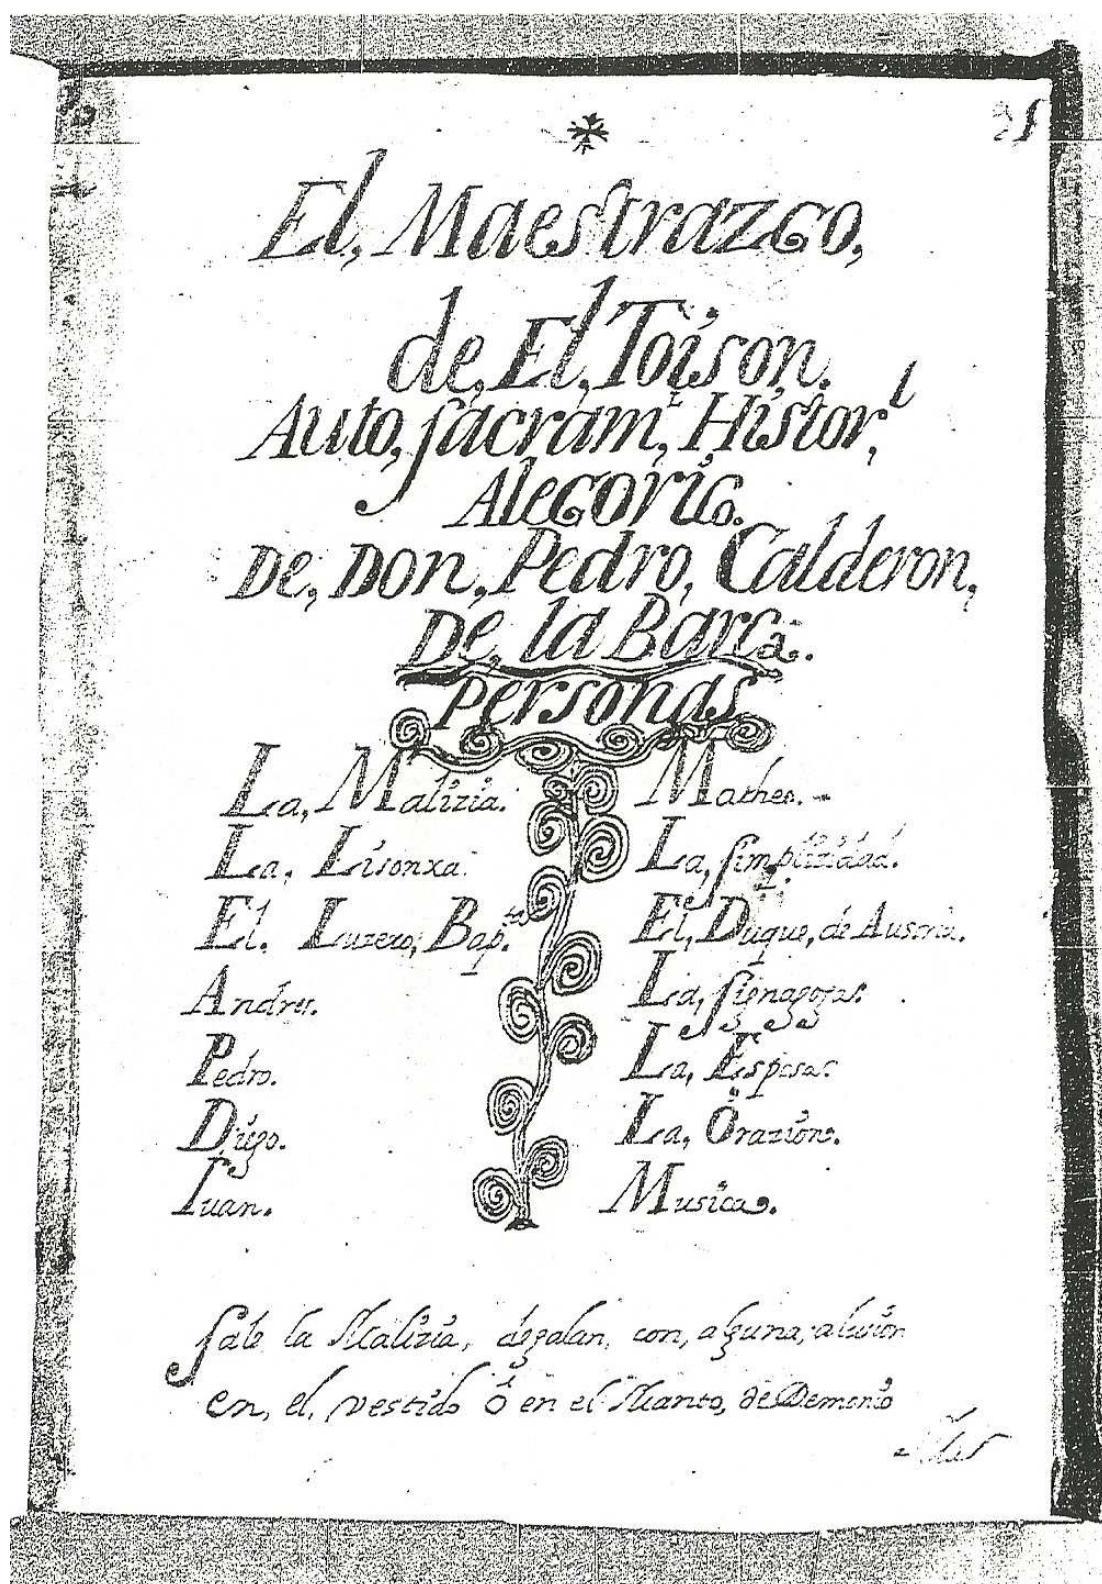 El, Maestrazgo,
de, El, Toison.
Auto, sacram,ᵗ Histor,ˡ
Alegoric.
De, Don, Pedro, Calderon,
De, la Barca.
Personas
La, Malizia.
La, Lisonxa.
El. Luzero, Bap.ᵗᵃ
Andres.
Pedro.
Diego.
Juan.
Matheo.
La, simplizidad.
El, Duque, de Austria.
La, signagoga.
La, Esposa.
La, Orazion.
Musica.
sale la Malizia, de galan, con, alguna, alusion
en, el, vestido ó en el Manto, de Demonio